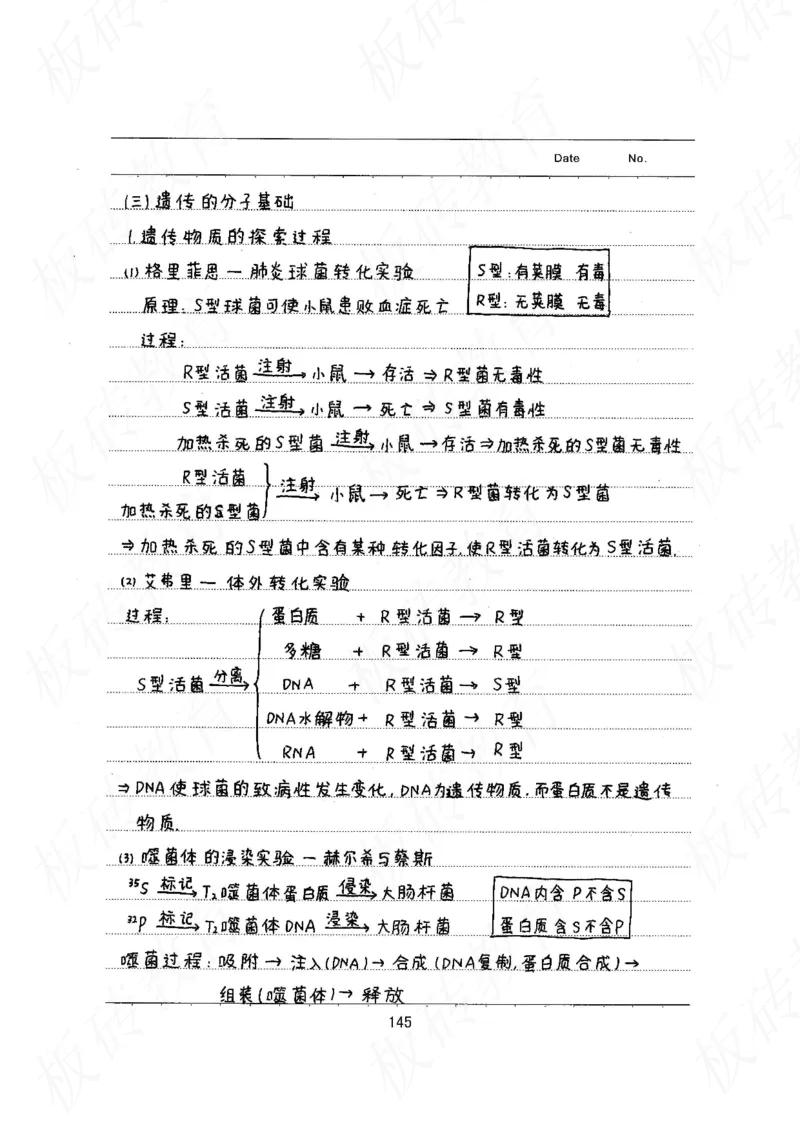 Date No.
(三)遗传的分子基础
1.遗传物质的探索过程
(1)格里菲思一肺炎球菌转化实验
S型:有荚膜 有毒
R型:无荚膜 无毒
原理:S型球菌可使小鼠患败血症死亡
过程:
R型活菌 注射→ 小鼠 → 存活 ⇒ R型菌无毒性
S型活菌 注射→ 小鼠 → 死亡 ⇒ S型菌有毒性
加热杀死的S型菌 注射→ 小鼠 → 存活 ⇒ 加热杀死的S型菌无毒性
R型活菌
加热杀死的S型菌 } 注射→ 小鼠 → 死亡 ⇒ R型菌转化为S型菌
⇒ 加热杀死的S型菌中含有某种转化因子,使R型活菌转化为S型活菌.
(2)艾弗里一体外转化实验
过程:
S型活菌 分离→ {
蛋白质 + R型活菌 → R型
多糖 + R型活菌 → R型
DNA + R型活菌 → S型
DNA水解物 + R型活菌 → R型
RNA + R型活菌 → R型
⇒ DNA使球菌的致病性发生变化,DNA为遗传物质,而蛋白质不是遗传
物质.
(3)噬菌体的浸染实验一赫尔希与蔡斯
³⁵S 标记→ T₂噬菌体蛋白质 侵染→ 大肠杆菌
³²P 标记→ T₂噬菌体DNA 浸染→ 大肠杆菌
DNA内含P不含S
蛋白质含S不含P
噬菌过程:吸附 → 注入(DNA) → 合成(DNA复制,蛋白质合成) →
组装(噬菌体) → 释放
145
板砖教育